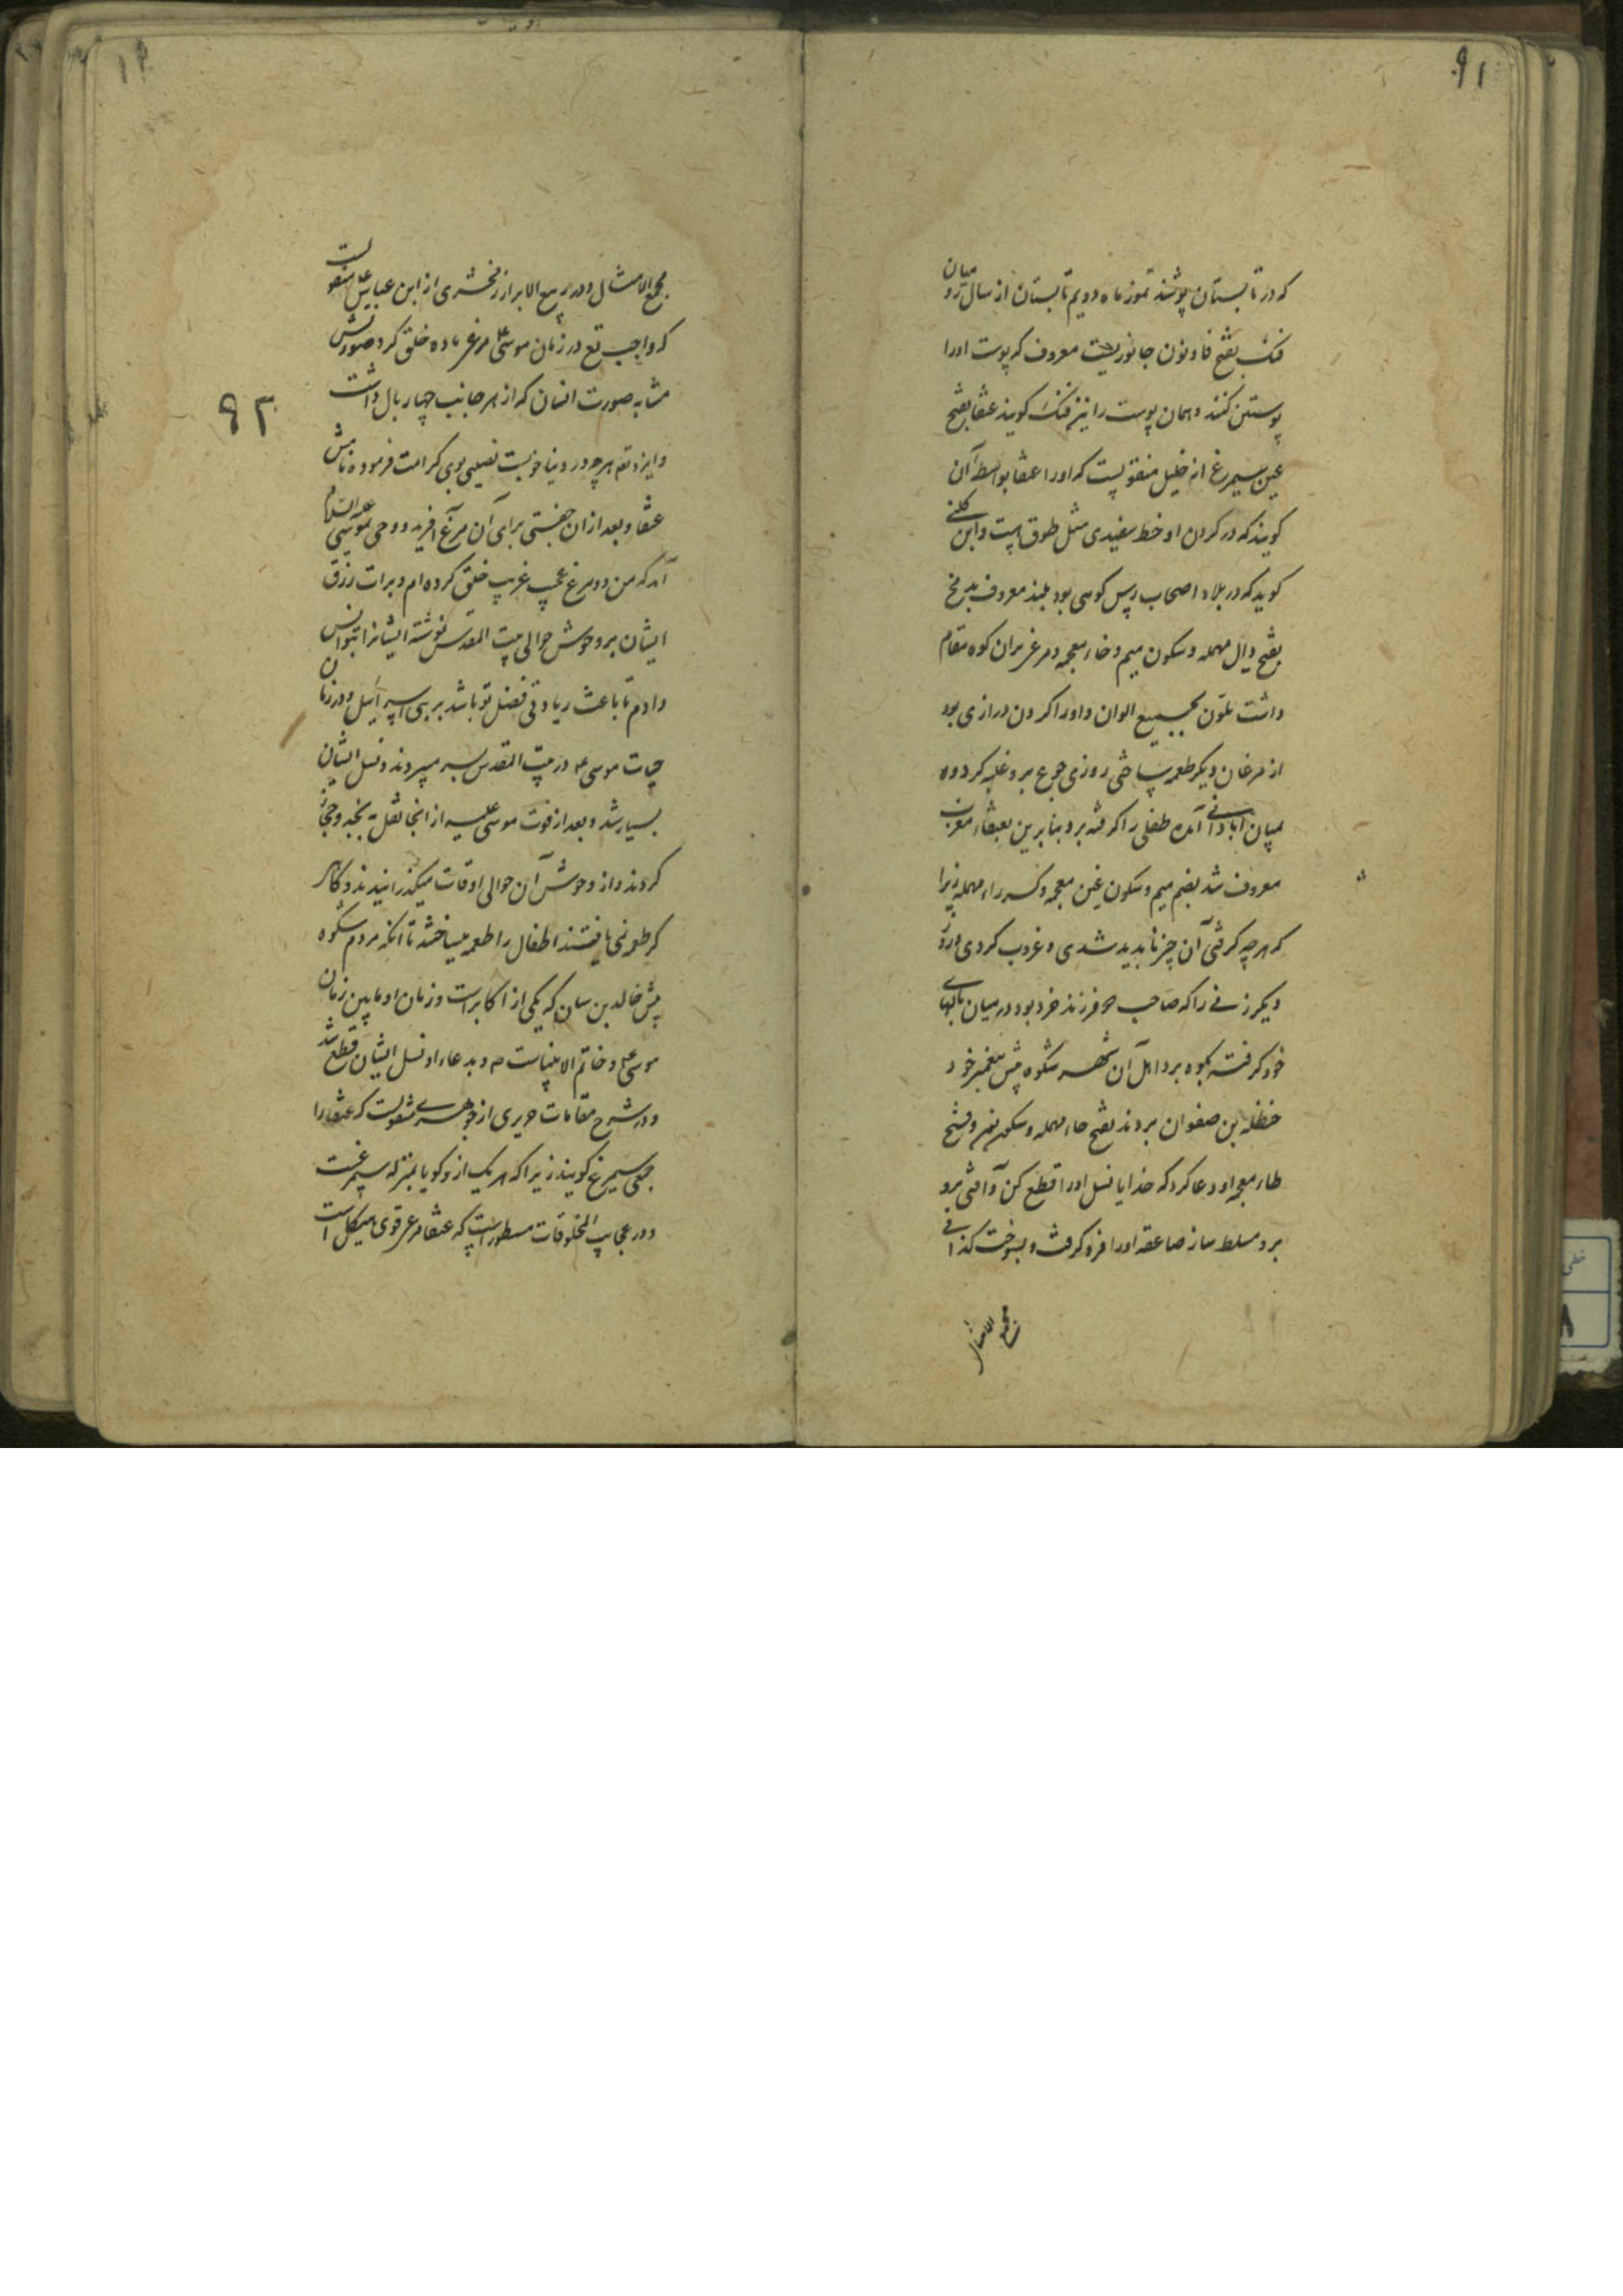 ۹۱
که در تابستان پوشند تموز ماه دویم تابستان از سال رو میان
فنک بفتح فا و نون جانوریست معروف که پوست اورا
پوستین کنند و همان پوست را نیز فنک کویند عنقا بفتح
عین سیمرغ از خلیل منقولست که اورا عنقا بواسطه آن
کویند که در کردن او خط سفیدی مثل طوق هست و ابن کلبی
کوید که در بلاد اصحاب رس کوهی بود بلند معروف بدمخ
بفتح دال مهمله و سکون میم و خاء معجمه و مرغی بران کوه مقام
داشت متلون بجمیع الوان و اورا کردن درازی بود
از مرغان دیکر طعمه ساختی روزی جوع برو غلبه کرده
بمیان آبادانی آمده طفلی را کرفته برد بنابرین بعنقاء مغرب
معروف شد بضم میم و سکون غین معجمه و کسر راء مهمله زیرا
که هر چه کرفتی آن چیز ناپدید شدی و غروب کردی و روز
دیکر زنی را که صاحب فرزند خرد بود در میان بالهای
خود کرفته بکوه برد اهل آن شهر شکوه پیش پیغمبر خود
حنظله بن صفوان بردند بفتح حاء مهمله و سکون نون و فتح
ظاء معجمه او دعا کرد که خدایا نسل اورا قطع کن و آفتی برو
برو مسلط ساز صاعقه اورا فرو کرفت و بسوخت کذا فی
مجمع الامثال
مجمع الامثال و در ربیع الابرار زمخشری از ابن عباس منقولست
که واجب تع در زمان موسی ع مرغی ماده خلق کرد صورتش
مشابه صورت انسان که از هر جانب چهار بال داشت
۹۲
و ایزد تع هر چه در دنیا خوبست نصیبی بوی کرامت فرموده نامش
عنقا و بعد ازان جفتی برای آن مرغ آفرید و وحی بموسی علیه السلام
آمد که من دو مرغ عجیب غریب خلق کرده ام و برات رزق
ایشان بر وحوش حوالی بیت المقدس نوشته ایشانرا بتو انس
دادم تا باعث زیادتی فضل تو باشد بر بنی اسرائیل و در زمان
حیات موسی ع در بیت المقدس بسر میبردند و نسل ایشان
بسیار شد و بعد از فوت موسی علیه از انجا نقل بنجد و حجاز
کردند و از وحوش آن حوالی اوقات میکذرانیدند و کاهی
که طعمه نمی یافتند اطفال را طعمه میساختند تا آنکه مردم شکوه
پیش خالد بن سنان که یکی از اکابر است و زمان او مابین زمان
موسی ع و خاتم الانبیاست ص و بدعاء او نسل ایشان قطع شد
و در شرح مقامات حریری از جوهری منقولست که عنقا را
جمعی سیمرغ کویند زیرا که هر یک ازو کویا بمنزله سی مرغست
و در عجایب المخلوقات مسطور است که عنقا مرغی قوی هیکل است